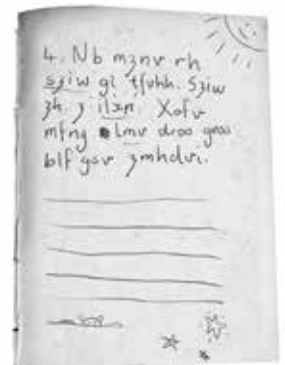 4. Nb mznv rh
sziw gl tfvhh. Sziw
zh z ilxp. Xofv
Lmv droo gvoo
blf gsv zmhdvi.